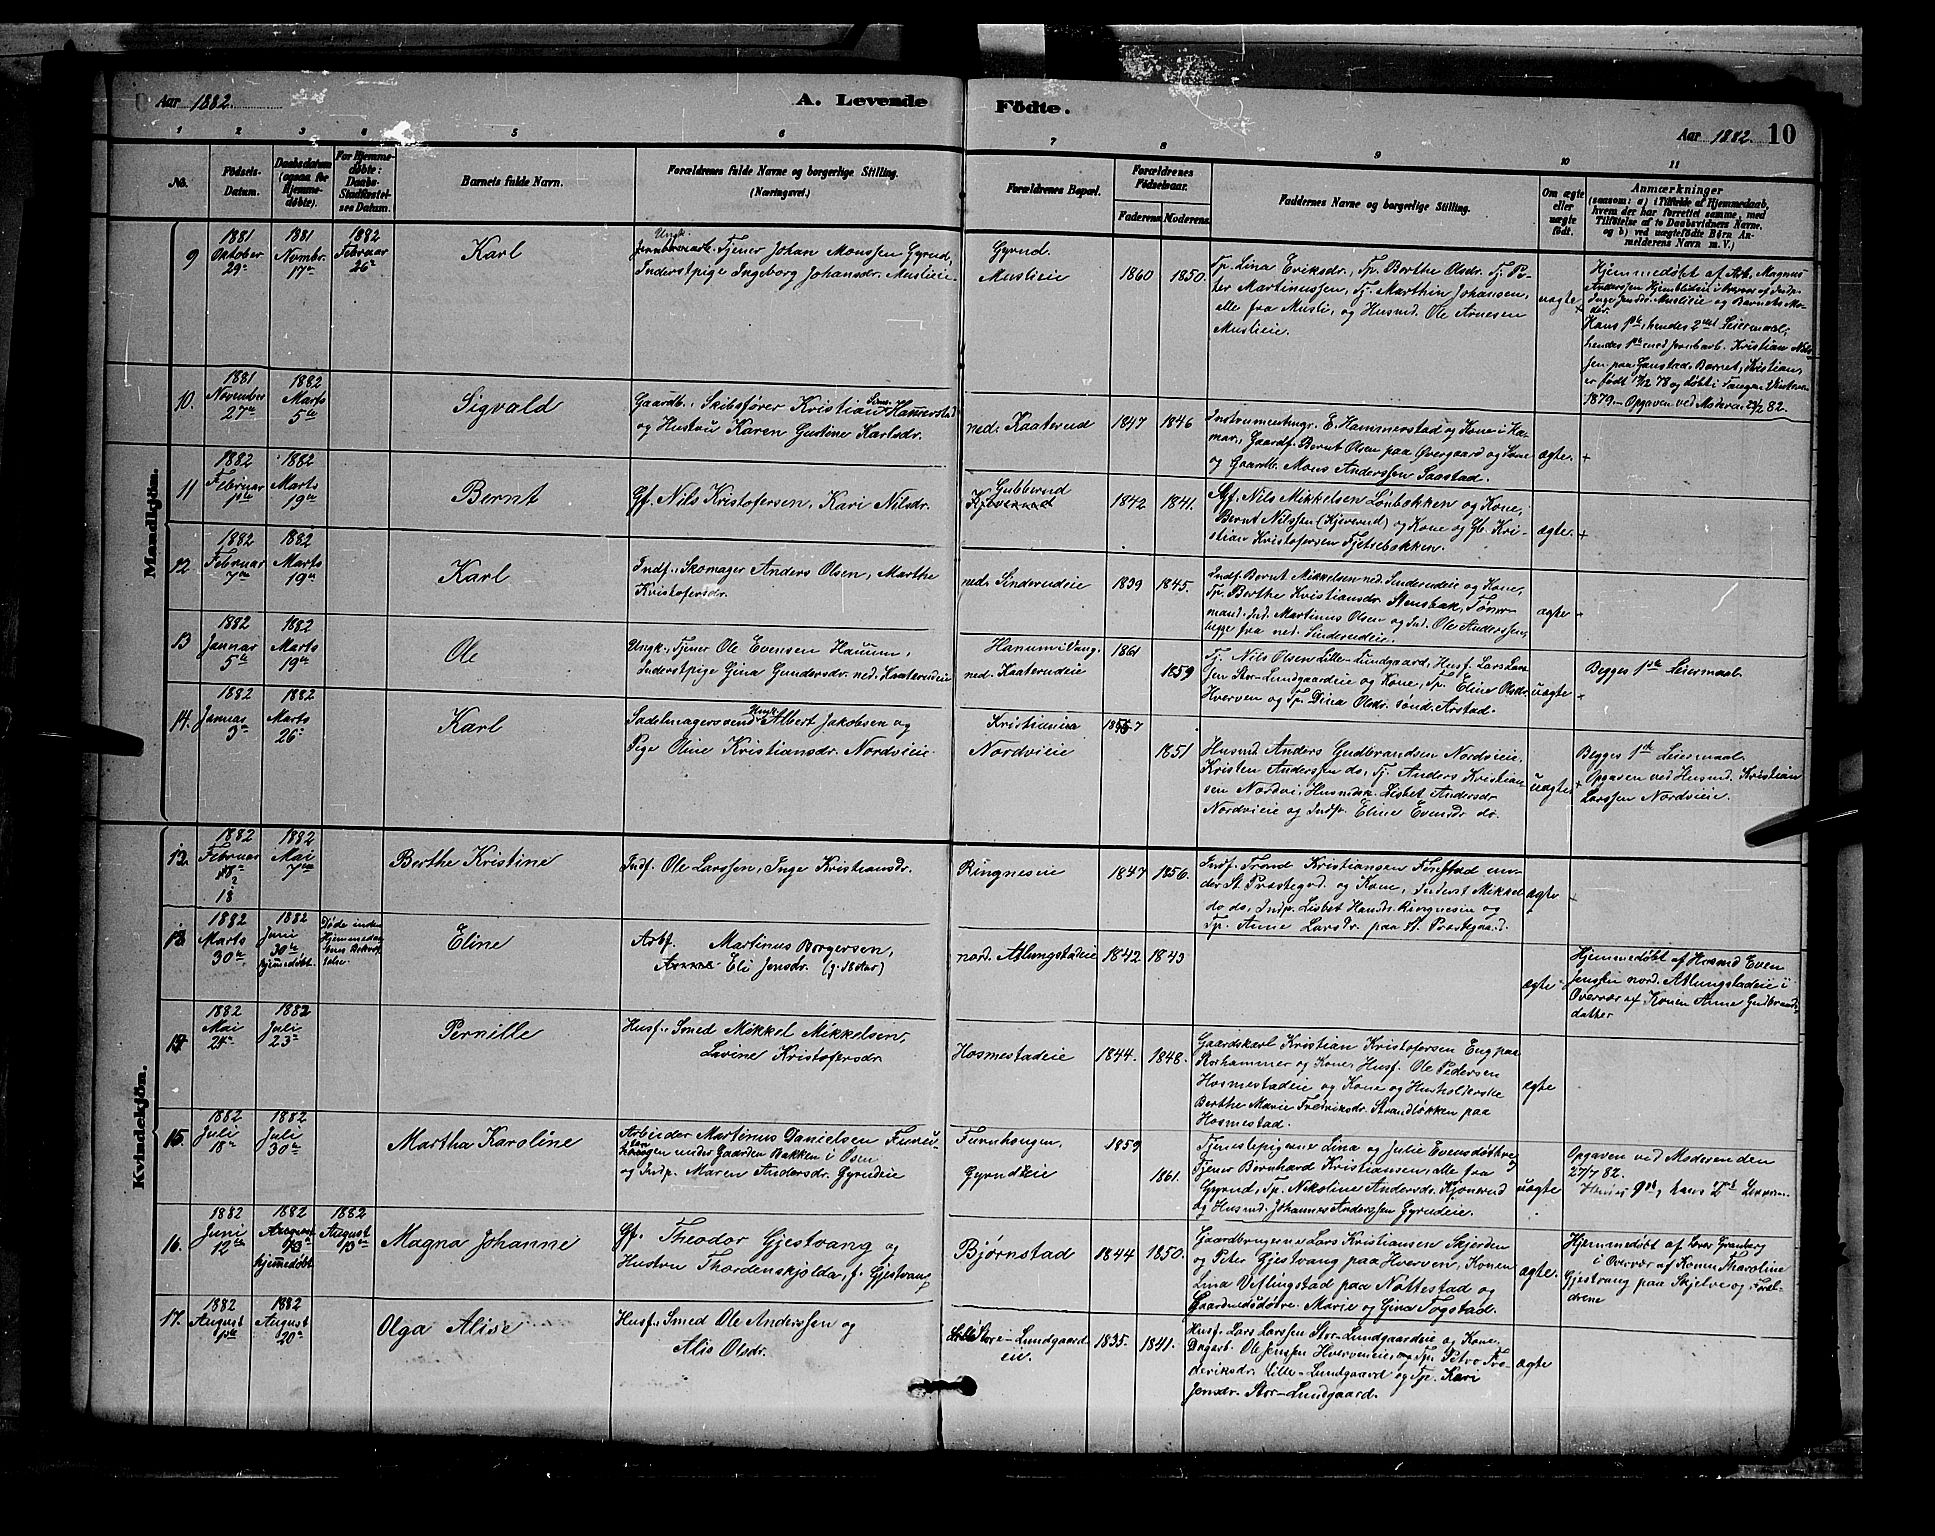 Aar 1882.
A. Levende
Födte.
Aar 1882. 10
1 2 3 4 5 6 7 8 9 10 11
No.
Födsels-
Datum.
Daabsdatum
(ogsaa for
Hjemme-
døbte).
For Hjemme-
døbte:
Daabs-
Stadfæstel-
ses Datum.
Barnets fulde Navn.
Forældrenes fulde Navne og borgerlige Stilling.
(Næringsvei.)
Forældrenes Bopæl.
Forældrenes
Födselsaar.
Faderens.
Moderens.
Faddernes Navne og borgerlige Stilling.
Om ægte
eller
uægte
födt.
Anmærkninger
(saasom: a) i Tilfælde af Hjemmedaab,
hvem der har forrettet samme, med
Tilföielse af to Daabsvidners Navne,
og b) ved uægtefödte Börn An-
melderens Navn m. V.)
Mandkjön.
9
1881
Oktober
29de
1881
Novmbr.
17de
1882
Februar
26de
Karl
Ungk.
Tjener Johan Monssen Gyrud,
Inderstpige Ingeborg Johansdr. Muslieie
Gyrud.
Muslieie
1860
1850.
Tp. Lina Eriksdr., Tp. Berthe Olsdr. Tj. Pe-
ter Martinussen, Tj. Marthin Johansen,
alle fra Musli, og Husmd. Ole Arnesen
Muslieie.
uægte
Hjemmedøbt af Arb. Magnus
Anderssen
Inge Jensdr. Muslieie og Barnets Mo-
der.
Hans 1ste, hendes 2det Leiermaal,
hendes 1ste med Jernbarb. Kristian Nils-
sen paa Barnet, Kristian,
er født 17/12 78 og døbt i Tangen Vinteren
1879. Opgaven ved Moderen 26/2 82.
10.
1881
November
27de
1882
Marts
5te
Sigvald
Gaardb., Skibsfører Kristian Sims. Hammerstad
og Hustru Karen Gustine Karlsdr.
ned. Kaaterud
1847
1846
Instrumentmgr. E. Hammerstad og Kone i Ha-
mar, Gaardf. Bernt Olsen paa Overgaard og Kone
og Gaardb. Mons Anderssen Saastad.
ægte.
11
1882
Februar
1ste
1882
Marts
19de
Bernt
Gf. Nils Kristofersen, Kari Nilsdr.
Gubberud
Kjeverud
1842
1841.
Gf. Nils Mikkelsen Lønbakken og Kone,
Bernt Nilssen (Kjeverud) og Kone og Gb. Kri-
stian Kristofersen Fjetsebakken.
ægte.
12
1882
Februar
7de
1882
Marts
19de
Karl
Indf., Skomager Anders Olsen, Marthe
Kristofersdr.
ned. Sinderudeie
1839
1845.
Indf. Bernt Mikkelsen ned. Sinderudeie og Kone,
Tp. Berthe Kristiansdr. Stensbak, Tømr-
mand. Ind. Martinus Olsen og Ind. Ole Anderssen,
begge fra ned. Sinderudeie.
ægte
13
1882
Januar
5te
1882
Marts
19de
Ole
Ungk., Tjener Ole Evensen Hanum,
Inderstpige Gina Gundersdr. ned. Kaaterudeie
Hanum i Vang.
ned. Kaaterudeie
1861
1859
Tj. Nils Olsen Lille-Lundgaard, Husf. Lars Lars-
sen Stor-Lundgaardeie og Kone, Tp. Eline Olsdr.
Hverven og Tp. Dina Olsdr. sønd. Arstad.
uægte
Begges 1ste Leiermaal.
14.
1882
Januar
9de
1882
Marts
26de
Karl
Sadelmagersvend Ungk. Albert Jakobsen og
Pige Oline Kristiansdr. Nordvieie
Kristiania
Nordvieie
1857
1851
Husmd. Anders Gudbrandsen Nordvieie,
Kristen Anderssen do, Tj. Anders Kristian-
sen Nordvi, Husmdsk. Lisbet Andersdr
Nordvieie og Indp. Eline Evensdr do.
uægte
Begges 1ste Leiermaal.
Opgaven ved Husmd. Kristian
Larssen Nordvieie.
Kvindekjön.
12.
1882
Februar
18
1882
Mai
7de
Berthe Kristine
Indf. Ole Larssen, Inge Kristiansdr.
Ringneseie
1847
1856.
Indf. Trond Kristiansen Finstad un-
der St. Præstegrd. og Kone, Inderst Mikkel
do do, Indp. Lisbet Hansdr. Ringneseie og
Tp. Anne Larsdr. paa St. Præstegaard.
ægte
13.
1882
Marts
30te
1882
Juni
30te
hjemmedøbt
Døde inden
Hjemmedaa-
bens Bekræf-
telse
Eline
Arbf. Martinus Borgersen,
Eli Jensdr.
nord. Atlungstadeie
1842
1843
ægte
Hjemmedøbt af Husmd Even
Jenssen nord. Atlungstadeie i
Overvær af Konen Anne Gudbrands
datter
14
1882
Mai
24de
1882
Juli
23de
Pernille
Husf., Smed Mikkel Mikkelsen,
Lovine Kristofersdr
Hosmestadeie
1844.
1848.
Gaardskarl Kristian Kristofersen Eng paa
Storhammer og Kone, Husf. Ole Pedersen
Hosmestadeie og Kone og Husholderske
Berthe Marie Fredriksdr. Strandløkken paa
Hosmestad.
ægte
15
1882
Juli
18de
1882
Juli
30te
Martha Karoline
Arbeider Martinus Danielsen Furu-
haugen under Gaarden Bakken i Osen
og Indp. Maren Andersdr. Gyrudeie
Furuhaugen,
Gyrudeie
1859
1861.
Tjenestepigerne Lina og Julie Evensdøttre,
Tjener Bernhard Kristiansen, alle fra
Gyrud, Tp. Nikoline Andersdr. Kjonerud
og Husmd. Johannes Anderssen Gyrudeie.
uægte
Opgaven ved Moderen den
27/7 82.
16.
1882
Juni
12te
1882
August
13
hjemmedøbt
1882
August
13de
Magna Johanne
Gf. Theodor Gjestvang og
Hustru Thordenskjolda, f. Gjestvang
Bjørnstad
1844
1850.
Gaardbrugerne Lars Kristiansen Skjerden
og Peter Gjestvang paa Hverven, Konen
Lina Vetlingstad paa Nattestad og
Gaardmdsdøtre. Marie og Gina Togstad.
ægte.
Hjemmedøbt af Granberg
i Overvær af Konen Tharoline
Gjestvang paa Skjelve og Foræl-
drene
17.
1882
August
1ste
1882
August
20de
Olga Alise
Husf., Smed Ole Anderssen og
Alis Olsdr.
Store-Lundgaard-
eie.
1835.
1841.
Husf. Lars Larssen Stor-Lundgaardeie og Kone,
Dagarb. Ole Jenssen Hverveneie, og Tp. Petra Fre-
deriksdr. Lille-Lundgaard og Tp. Kari
Jensdr. Stor-Lundgaard.
ægte